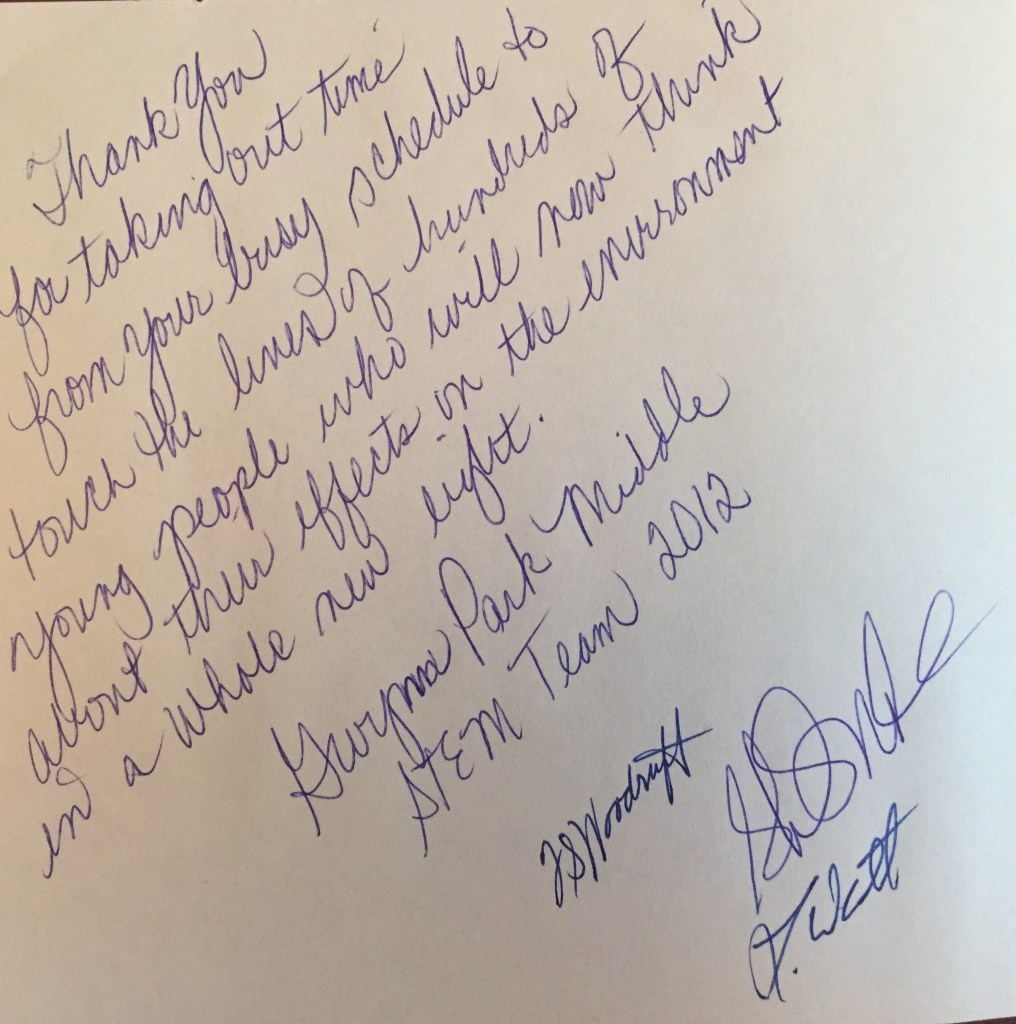 Thank You
for taking out time
from your busy schedule to
touch the lives of hundreds of
young people who will now think
about their effects on the environment
in a whole new light.
Gwynn Park Middle
STEM Team 2012
Woodruft